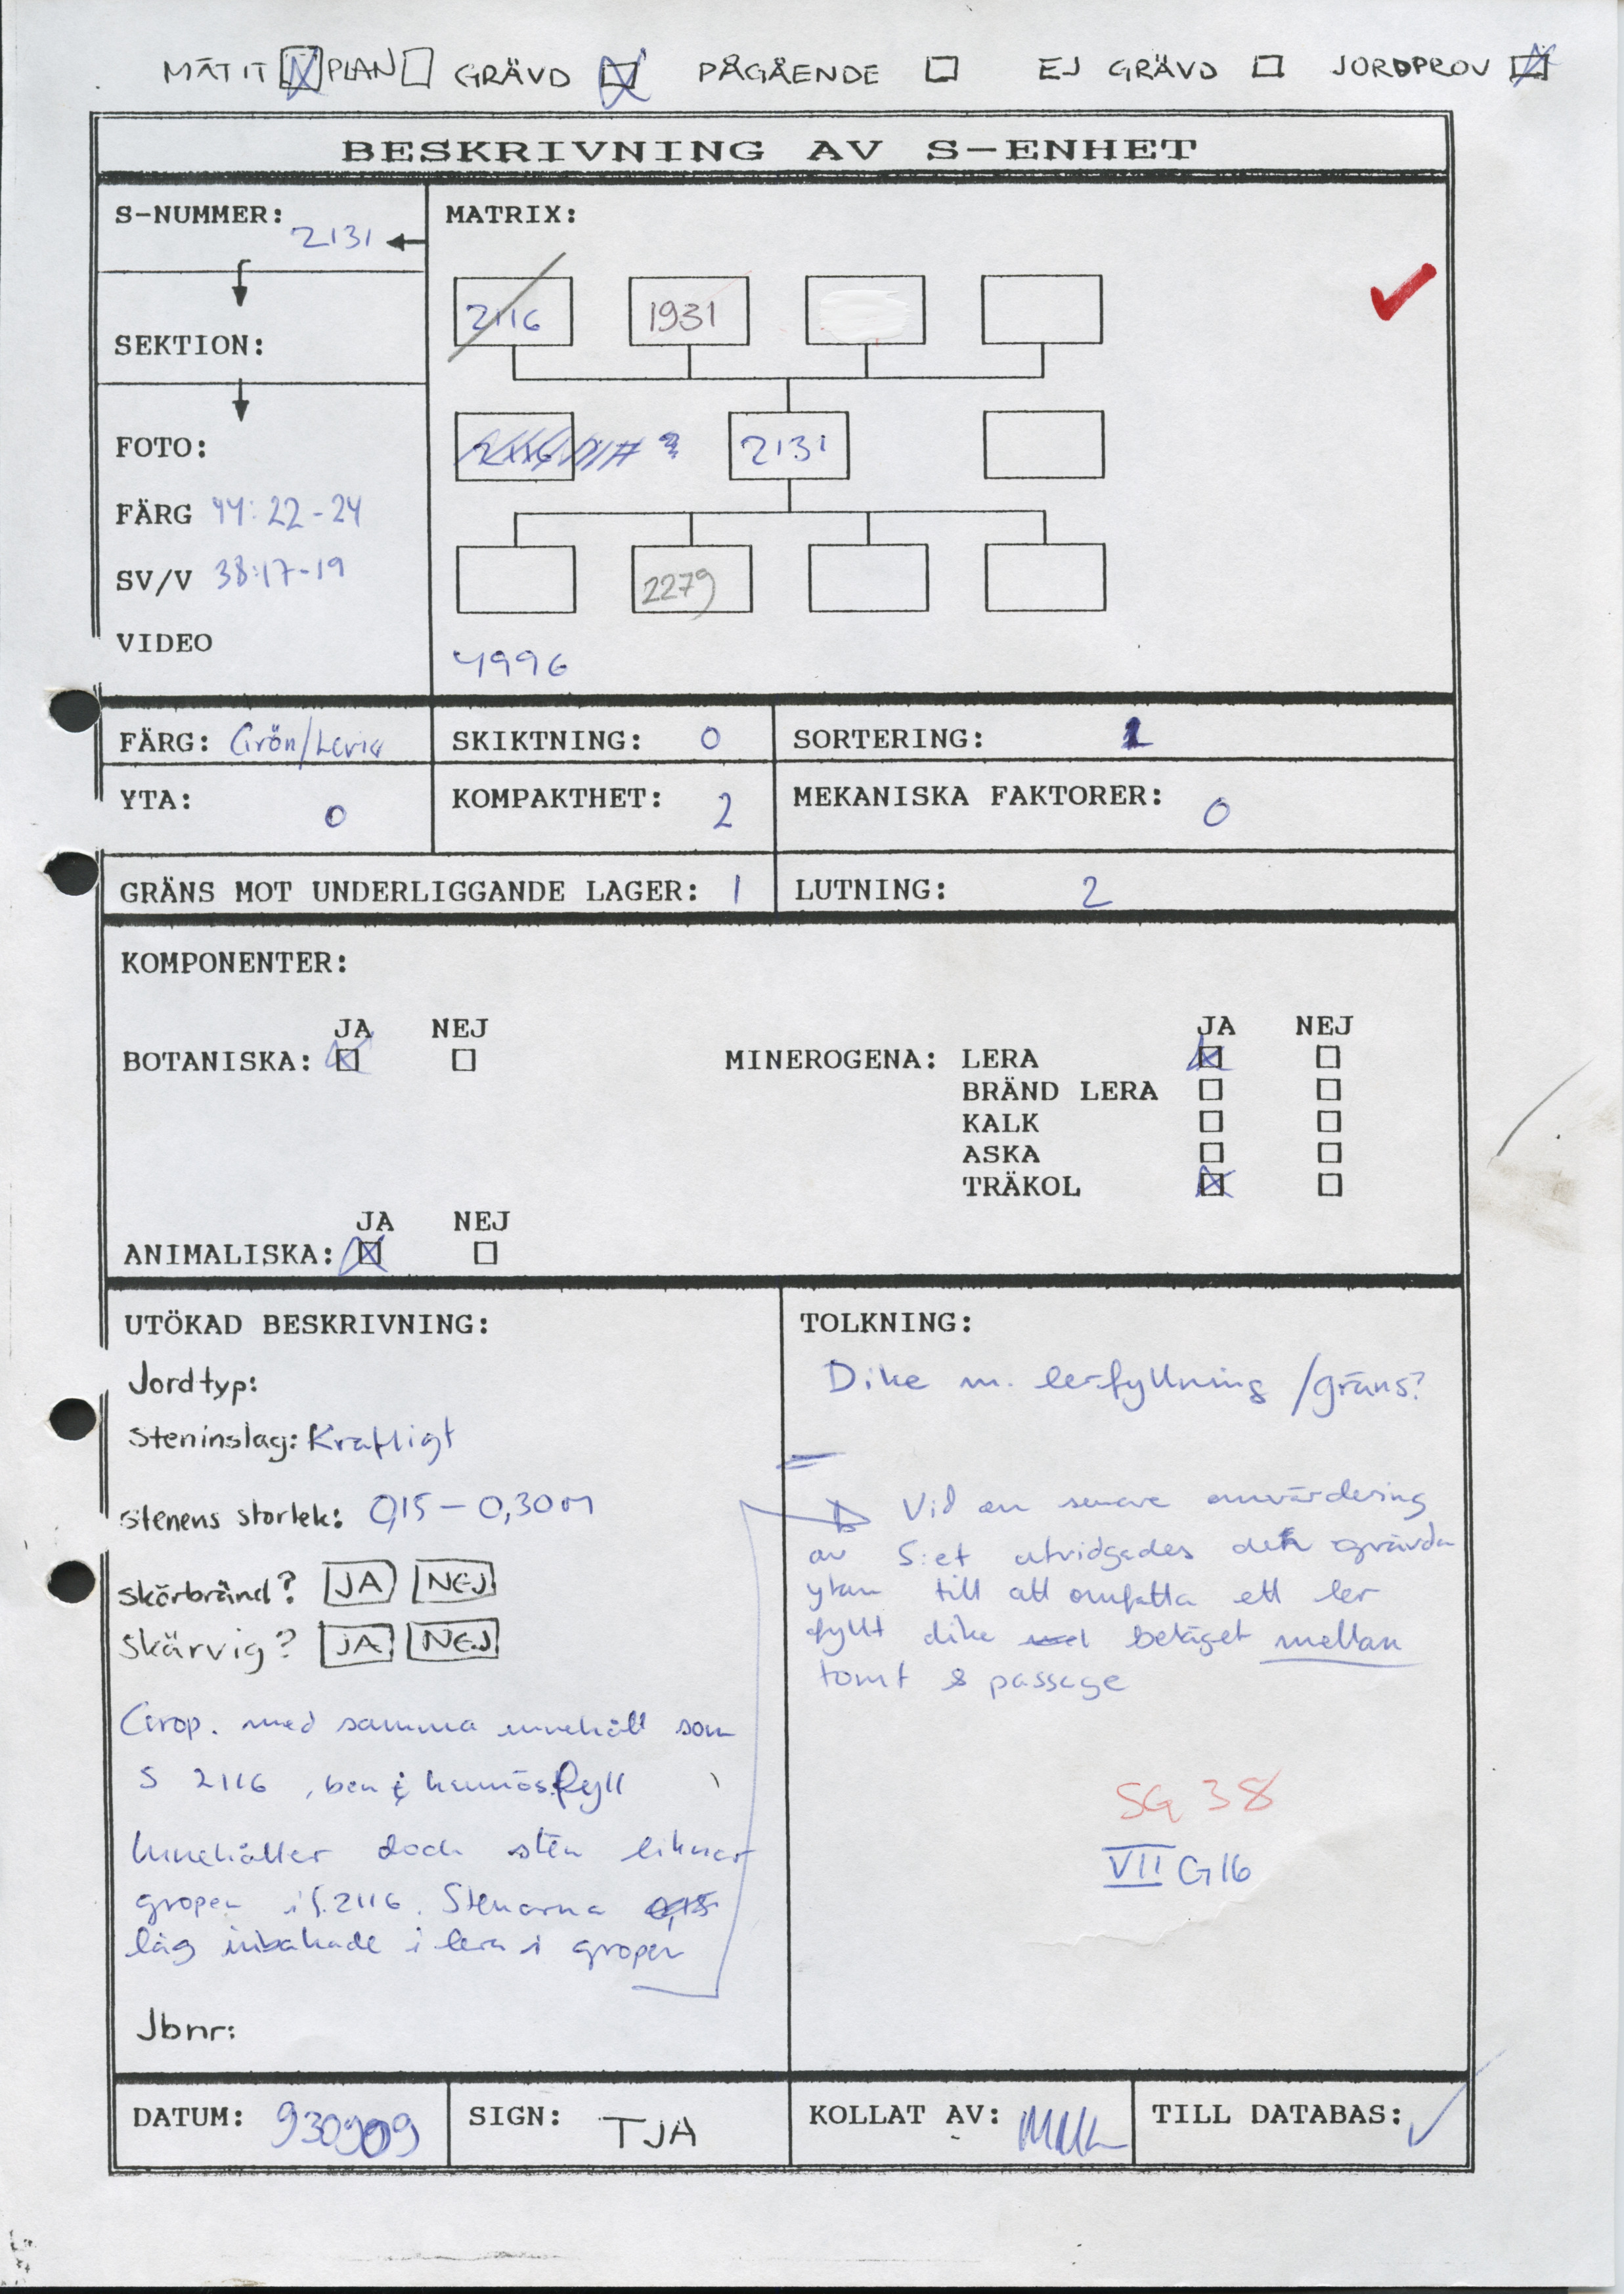 MÄT IT PLAN GRÄVD PÅGÅENDE EJ GRÄVD JORDPROV
BESKRIVNING AV S-ENHET
S-NUMMER: 2131
MATRIX:
2116 1931
SEKTION:
FOTO:
2131
FÄRG 44:22-24
SV/V 38:17-19
2279
VIDEO
4996
FÄRG: Grön/Lerig SKIKTNING: 0 SORTERING: 1
YTA: 0 KOMPAKTHET: 2 MEKANISKA FAKTORER: 0
GRÄNS MOT UNDERLIGGANDE LAGER: 1 LUTNING: 2
KOMPONENTER:
JA NEJ JA NEJ
BOTANISKA: MINEROGENA: LERA
BRÄND LERA
KALK
ASKA
TRÄKOL
JA NEJ
ANIMALISKA:
UTÖKAD BESKRIVNING:
Jordtyp:
Steninslag: Kraftigt
Stenens storlek: 0,15 – 0,30 m
Skörbränd? JA NEJ
Skärvig? JA NEJ
Grop. med samma innehåll som
S 2116, ben i humös fyll
Innehåller dock sten liknar
gropen i S.2116. Stenarna 0,15
låg inbakade i lera i gropen
Jbnr:
TOLKNING:
Dike m. lerfyllning /gräns?
Vid en senare omvärdering
av S:et utvidgades den grävda
ytan till att omfatta ett ler
fyllt dike beläget mellan
tomt & passage
SG 38
VII G16
DATUM: 930909 SIGN: TJA KOLLAT AV: TILL DATABAS: